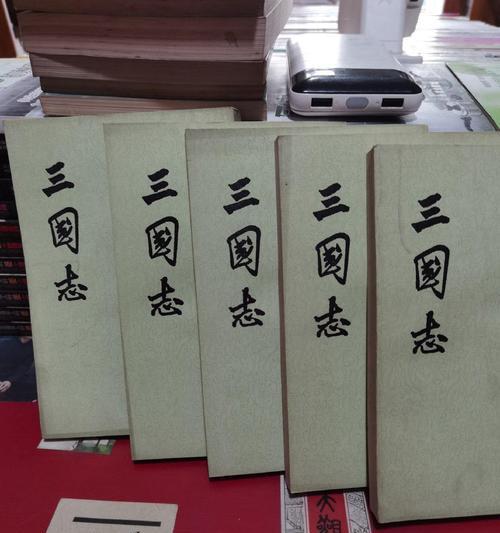 三
國
志
三
國
志
三
國
志
三
國
志
三
國
志